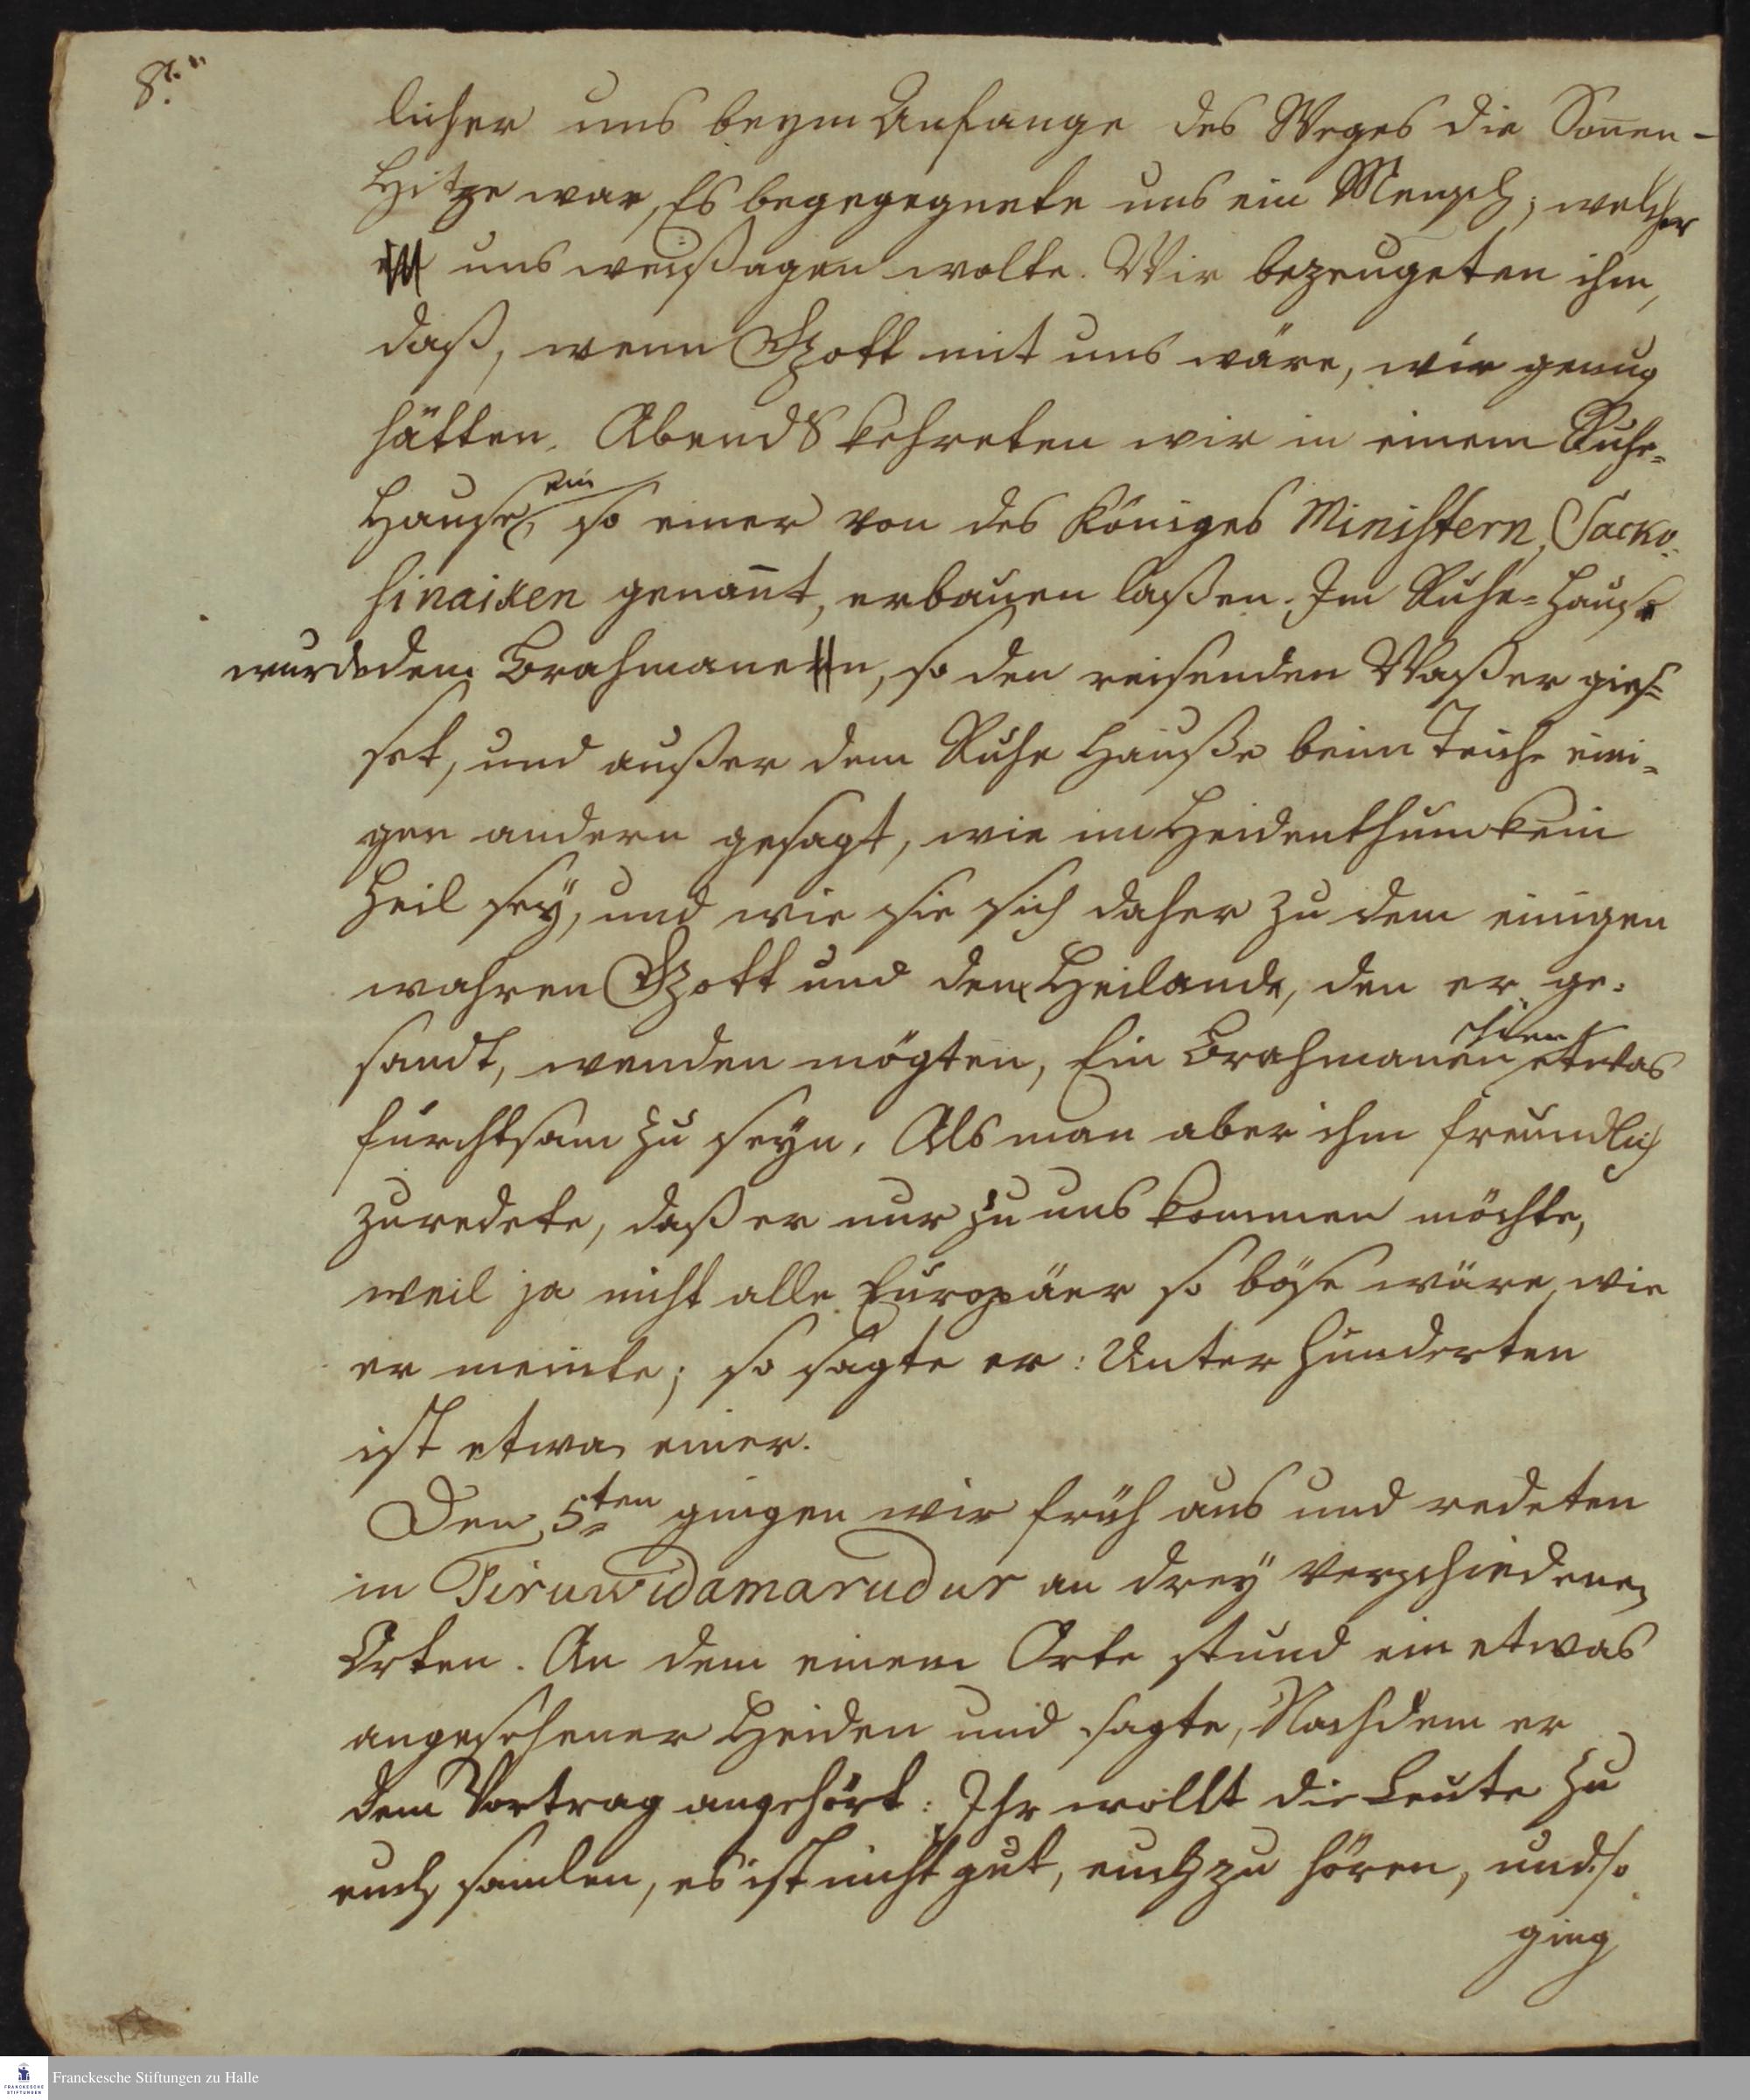 8.
licher uns beym Anfange des Weges die Sonen-
Hitze war, Es begegegnete uns ein Mensch; welcher
uns weißagen wolte. Wir bezeugeten ihm,
daß, wenn Gott mit uns wäre, wir genug
hätten. Abends kehreten wir in einem Ruhe-
Hause, ein so einer von des Königes Ministern, Sacko-
hinaiken genañt, erbauen laßen. Im Ruhe-Hause
wurde dem Brahmanen, so den reisenden Waßer gies-
set, und außer dem Ruhe Hauße beim Teiche eini-
gen andern gesagt, wie im Heidenthum kein
Heil seÿ, und wie sie sich daher zu dem einigen
wahren Gott und dem Heilande, den er ge-
sandt, wenden mögten, Ein Brahmanen schien etwas
furchtsam zu seÿn. Als man aber ihm freundlich
zuredete, daß er nur zu uns kommen möchte,
weil ja nicht alle Europäer so böse wäre, wie
er meinte; so sagte er: Unter Hunderten
ist etwa einer.
Den 5ten gingen wir früh aus und redeten
in Tiruwidamarudur an dreÿ verschiedenen
Orten. An dem einem Orte stund ein etwas
angesehener Heiden und sagte, Nachdem er
dem Vortrag angehört: Ihr wollt die Leute zu
euch samlen, es ist nicht gut, euch zu hören, und so
ging
Franckesche Stiftungen zu Halle